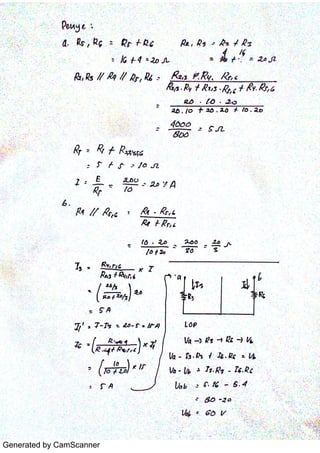 Penye :
a. R5, R6 = R5 + R6
= 16 + 4 = 20 Ω
R2, R3 = R2 + R3
= 4 + 16 = 20 Ω
R2,R3 // R4 // R5, R6 = R2,3 . R4 . R5,6
R2,3.R4 + R2,3.R5,6 + R4.R5,6
= 20 . 10 . 20
20.10 + 20.20 + 10.20
= 4000
800
= 5 Ω
RT = R1 +
= 5 + 5 = 10 Ω
I = E
RT
= 200
10
= 20 A
b.
R4 // R5,6 = R4 . R5,6
R4 + R5,6
= 10 . 20
10 + 20
= 200
30
= 20
3
Ω
I3 = x I
= ( 20/3
20 + 20/3 ) 20
= 5 A
I1' = I - I3 = 20 - 5 = 15 A
I6 = x I1'
= ( 10
10 + 20 ) x 15
= 5 A
a
b
I3
I6
R3
R6
LOP
Va → R3 → R6 → Vb
Va - I3.R3 + I6.R6 = Vb
Va - Vb = I3.R3 - I6.R6
Vab = 5.16 - 5.4
= 80 - 20
Vab = 60 V
Generated by CamScanner